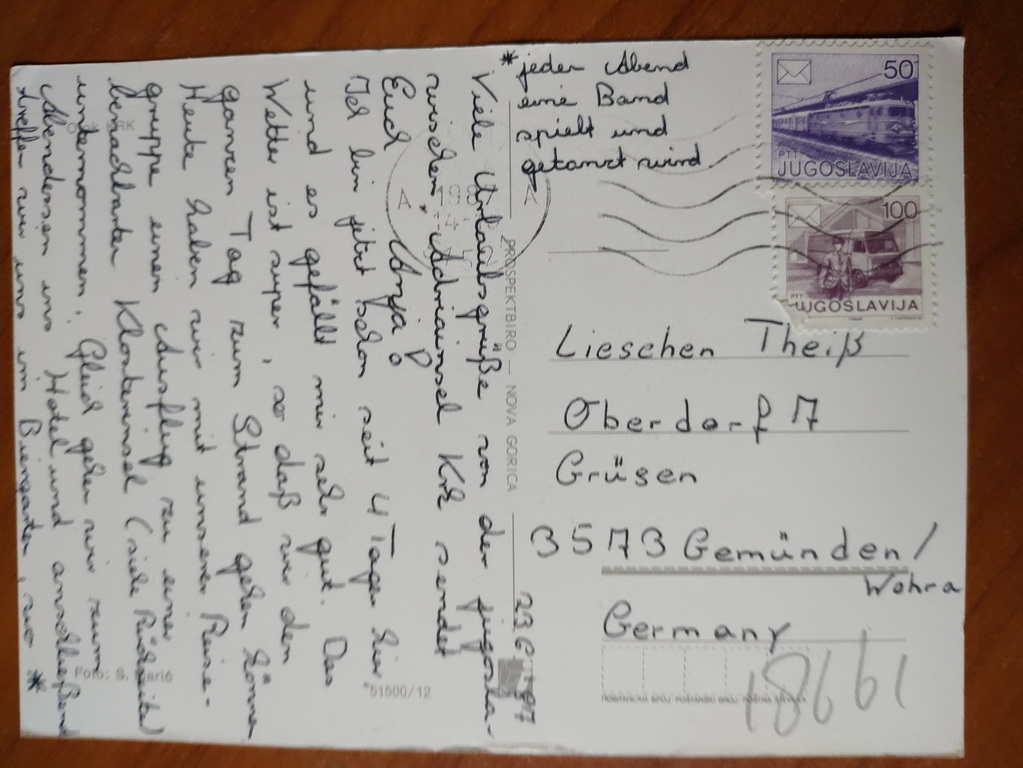 23.6.1987
Viele Urlaubsgrüße von der jugosla-
wischen Adriainsel Krk sendet
Euch Anja!
Ich bin jetzt schon seit 4 Tagen hier
und es gefällt mir sehr gut. Das
Wetter ist super, so daß wir den
ganzen Tag zum Strand gehen können
Heute haben wir mit unserer Reise-
gruppe einen Ausflug zu einer
benachbarten Klosterinsel (siehe Rückseite)
unternommen. Gleich gehen wir zum
Abendessen ins Hotel und anschließend
treffen wir uns im Biergarten, wo *
* jeden Abend
eine Band
spielt und
getanzt wird
50
PTT
JUGOSLAVIJA
100
PTT
JUGOSLAVIJA
A
A
PROSPEKTBIRO — NOVA GORICA
Lieschen Theiß
Oberdorf 7
Grüsen
3573 Gemünden/
Wohra
Germany
18661
Foto: S.
*51500/12